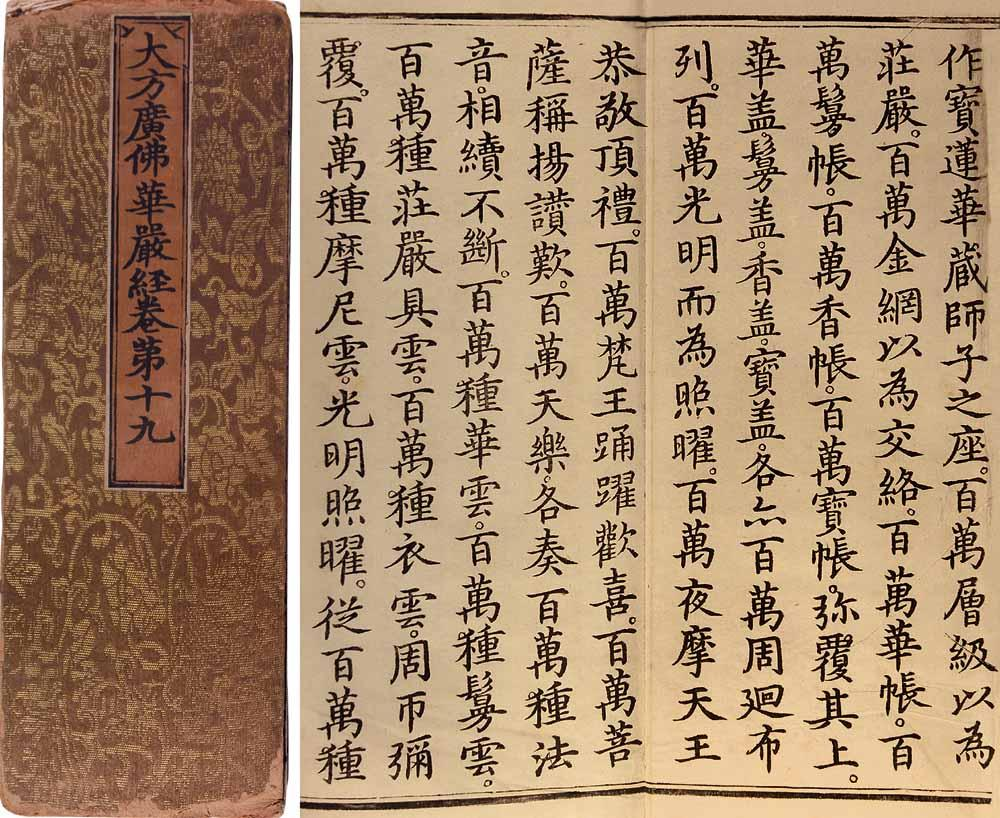 大方廣佛華嚴経卷第十九
作寶蓮華蔵師子之座。百萬層級以為
莊嚴。百萬金網以為交絡。百萬華帳。百
萬鬘帳。百萬香帳。百萬寶帳。弥覆其上。
華盖。鬘盖。香盖。寶盖。各亦百萬周迴布
列。百萬光明而為照曜。百萬夜摩天王
恭敬頂禮。百萬梵王踊躍歡喜。百萬菩
薩稱揚讃歎。百萬天樂。各奏百萬種法
音。相續不斷。百萬種華雲。百萬種鬘雲。
百萬種莊嚴具雲。百萬種衣雲。周帀彌
覆。百萬種摩尼雲。光明照曜。従百萬種